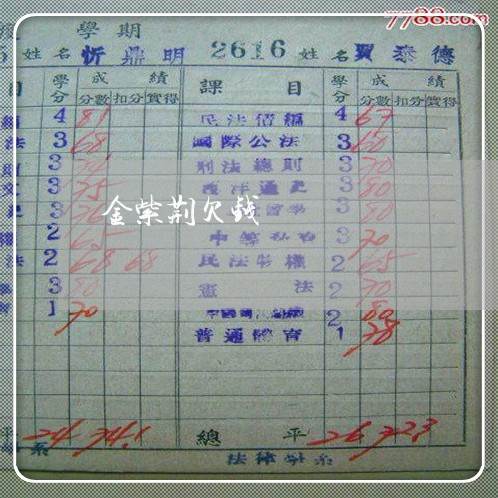 7788.com
學期
姓名 忻鼎明 2616 姓名 賈泰德
目 學分 成績 課目 學分 成績
分數 扣分 實得 分數 扣分 實得
4 81 民法債編 4 67
法 3 68 國際公法 3 60
3 刑法總則 3 70
3 75 西洋通史 3 80
3 3 80
2 65 3 70
法 2 68 68 民法物權 2 65
3 80 憲法 2 70
1 70 2 80
普通體育 1 78
平 24 74.1 總平 26 72.3
系 法律學系
金紫荆欠钱